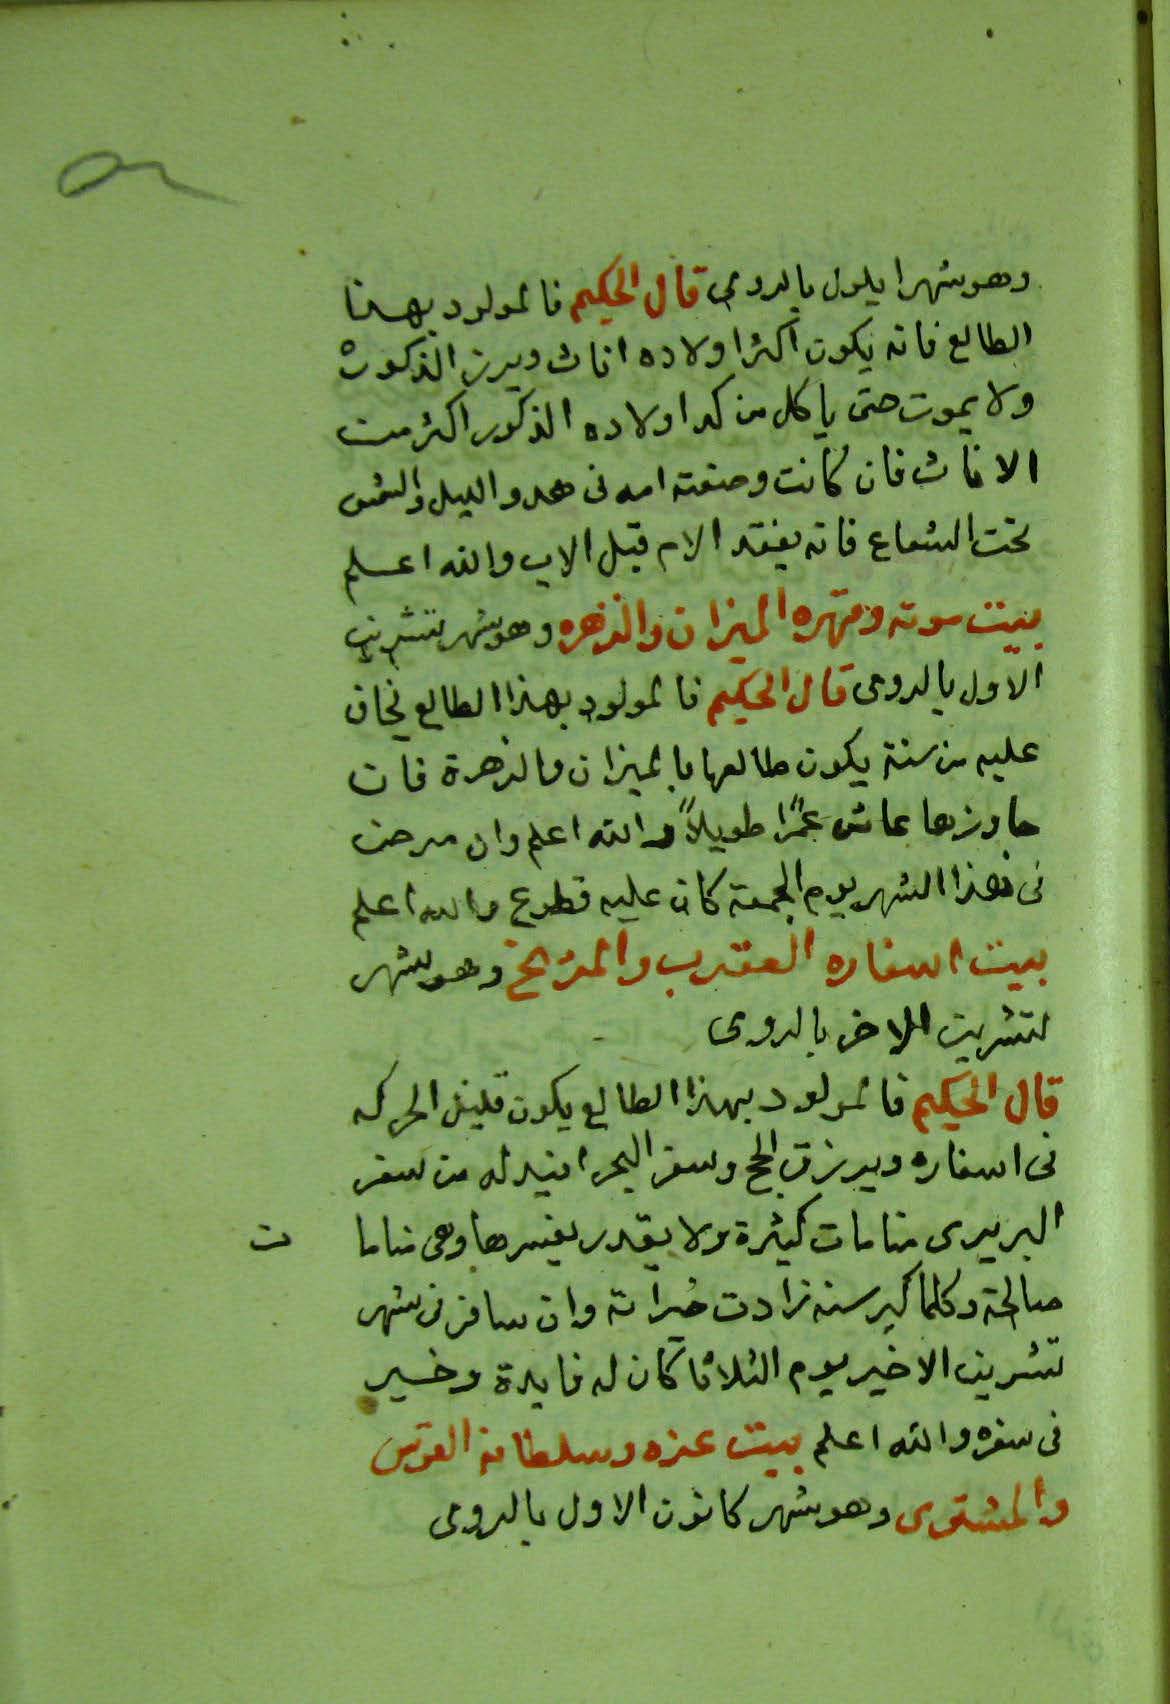 وهو شهر ايلول بالرومى قال الحكيم فالمولود بهذا
الطالع فانه يكون اكثر اولاده اناث ويرزق الذكوره
ولا يموت حتى ياكل من كد اولاده الذكور اكثر من
الاناث فان كانت وضعته امه فى هدو الليل والشمس
تحت الشعاع فانه يفقد الام قبل الاب والله اعلم
بيت موته وقهره الميزان والزهره وهو شهر تشرين
الاول بالرومى قال الحكيم فالمولود بهذا الطالع يخاف
عليه من سنة يكون طالعها بالميزان والزهرة فان
جاوزها عاش عمرًا طويلاً والله اعلم وان مرض
فى هذا الشهر يوم الجمعة كان عليه قطوع والله اعلم
بيت اسفاره العقرب والمريخ وهو شهر
تشرين الاخر بالرومى
قال الحكيم فالمولود بهذا الطالع يكون قليل الحركه
فى اسفاره ويرزق الحج وسفر البحر افيد له من سفر
البر يرى منامات كثيرة ولا يقدر يفسرها وهى مناما
ت
صالحة وكلما كبر سنه زادت خيراته وان سافر فى شهر
تشرين الاخير يوم الثلاثا كان له فايدة وخير
فى سفره والله اعلم بيت عزه وسلطانه القوس
والمشترى وهو شهر كانون الاول بالرومى